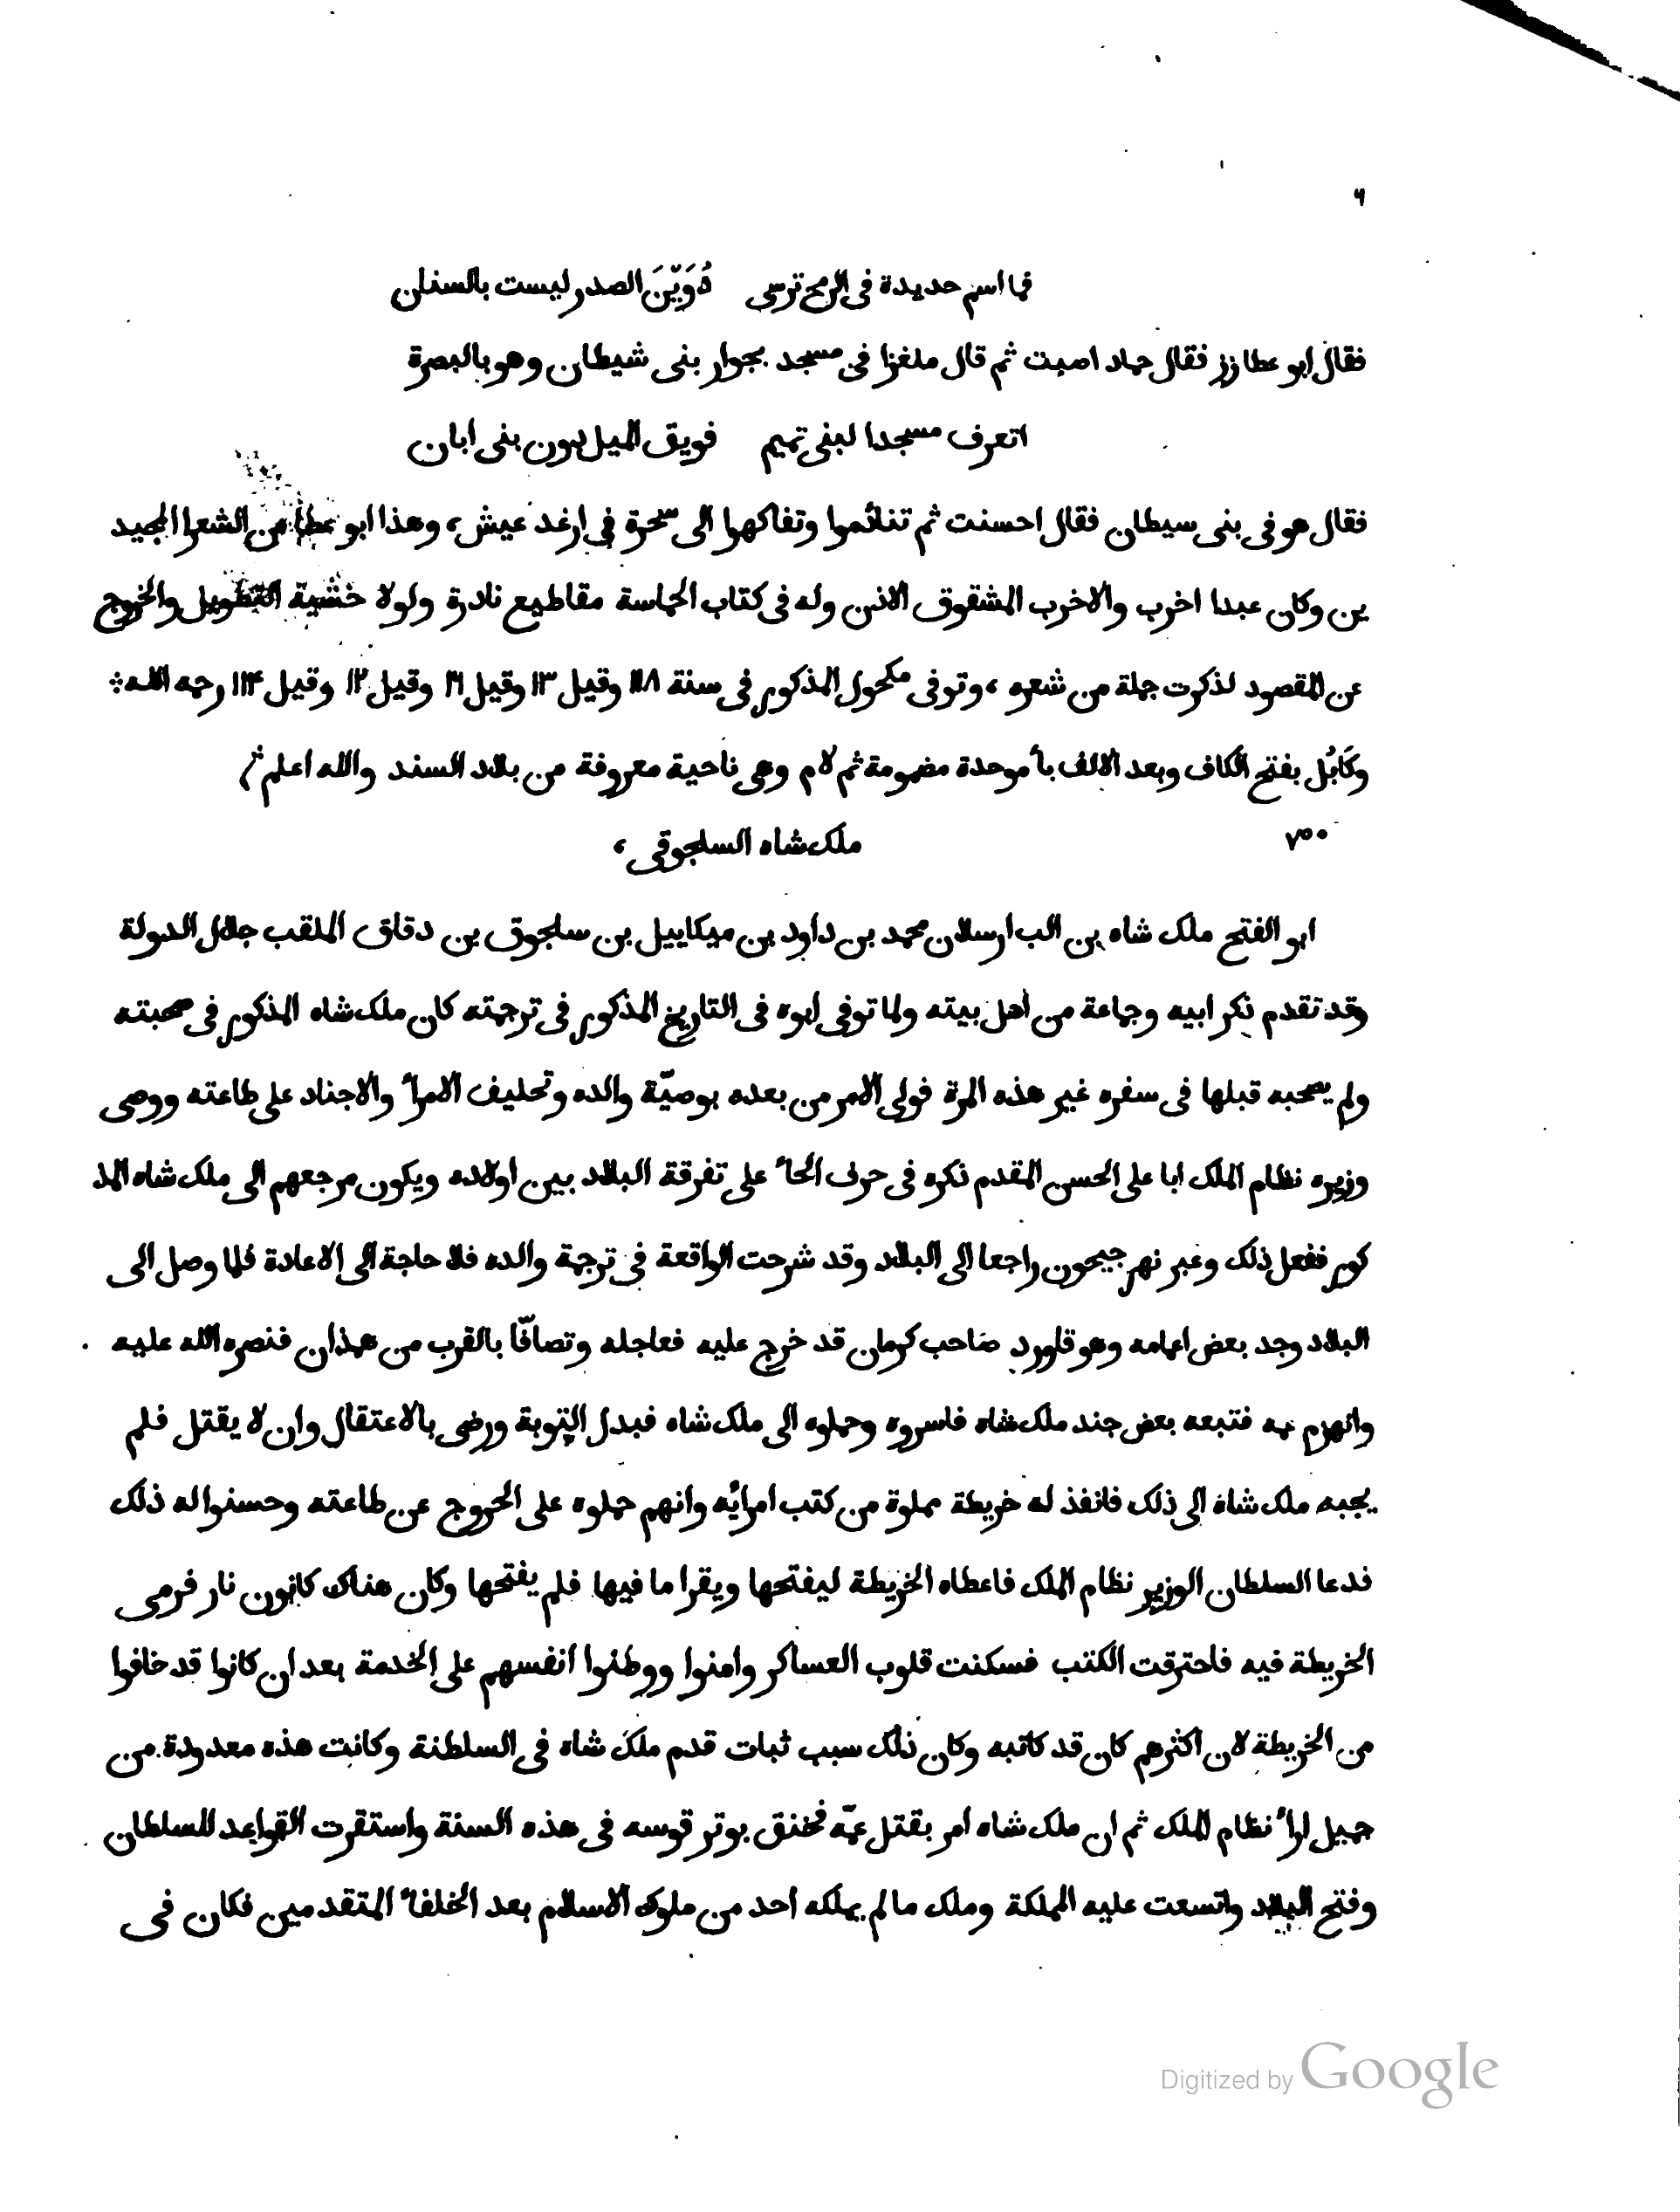 ٦
فما اسم حديدة فى الرمح ترسى دُوَيّنَ الصدر ليست بالسنان
فقال ابو عطا زز فقال حماد اصبت ثم قال ملغزا فى مسجد بجوار بنى شيطان وهو بالبصرة
اتعرف مسجدا لبنى تميم فويق الميل دون بنى ابان
فقال هو فى بنى سيطان فقال احسنت ثم تنائموا وتفاكهوا الى سحرة فى ارغد عيش، وهذا ابو عطا من الشعرا المجيد
ين وكان عبدا اخرب والاخرب المشقوق الاذن وله فى كتاب الحماسة مقاطيع نادرة ولولا خشية التطويل والخروج
عن المقصود لذكرت جملة من شعره، وتوفى مكحول المذكور فى سنة ١١٨ وقيل ١٣ وقيل ١٦ وقيل ١٢ وقيل ١١٤ رحمه الله
وكَابُل بفتح الكاف وبعد الالف بأ موحدة مضمومة ثم لام وهى ناحية معروفة من بلاد السند والله اعلم
٧٥٠ ملك شاه السلجوقى،
ابو الفتح ملك شاه بن الب ارسلان محمد بن داود بن ميكاييل بن سلجوق بن دقاق الملقب جلال الدولة
وقد تقدم ذكر ابيه وجماعة من اهل بيته ولما توفى ابوه فى التاريخ المذكور فى ترجمته كان ملك شاه المذكور فى صحبته
ولم يصحبه قبلها فى سفره غير هذه المرة فولى الامر من بعده بوصيّة والده وتحليف الامرأ والاجناد على طاعته ووصى
وزيره نظام الملك ابا على الحسن المقدم ذكره فى حرف الحأ على تفرقة البلاد بين اولاده ويكون مرجعهم الى ملك شاه المذ
كور ففعل ذلك وعبر نهر جيحون راجعا الى البلاد وقد شرحت الواقعة فى ترجمة والده فلا حاجة الى الاعادة فلما وصل الى
البلاد وجد بعض اعمامه وهو قاورد صاحب كرمان قد خرج عليه فعاجله وتصافّا بالقرب من همذان فنصره الله عليه
وانهزم عمه فتبعه بعض جند ملك شاه فاسروه وحملوه الى ملك شاه فبذل التوبة ورضى بالاعتقال وان لا يقتل فلم
يجبه ملك شاه الى ذلك فانفذ له خريطة مملوة من كتب امرائه وانهم حملوه على الخروج عن طاعته وحسنوا له ذلك
فدعا السلطان الوزير نظام الملك فاعطاه الخريطة ليفتحها ويقرا ما فيها فلم يفتحها وكان هناك كانون نار فرمى
الخريطة فيه فاحترقت الكتب فسكنت قلوب العساكر وامنوا ووطنوا انفسهم على الخدمة بعد ان كانوا قد خافوا
من الخريطة لان اكثرهم كان قد كاتبه وكان ذلك سبب ثبات قدم ملك شاه فى السلطنة وكانت هذه معدودة من
جميل ارأ نظام الملك ثم ان ملك شاه امر بقتل عمّه فخنق بوتر قوسه فى هذه السنة واستقرت القواعد للسلطان
وفتح البلاد واتسعت عليه المملكة وملك ما لم يملكه احد من ملوك الاسلام بعد الخلفأ المتقدمين فكان فى
Digitized by Google